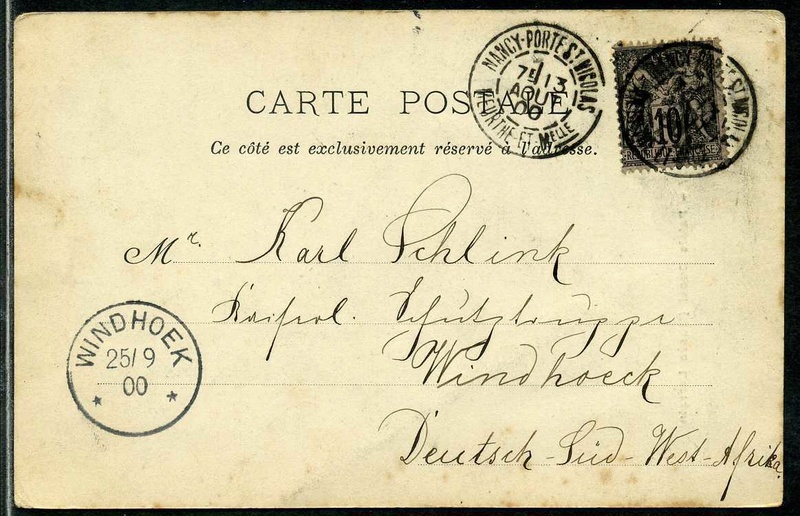 NANCY-PORTE ST NICOLAS
7E 13
AOUT
00
MEURTHE-ET-MELLE
10
CARTE POSTALE
Ce côté est exclusivement réservé à l'adresse.
Mr. Karl Schlink
Kaiserl. Schutztruppe
Windhoeck
Deutsch-Süd-West-Afrika.
WINDHOEK
25/9
00
* *